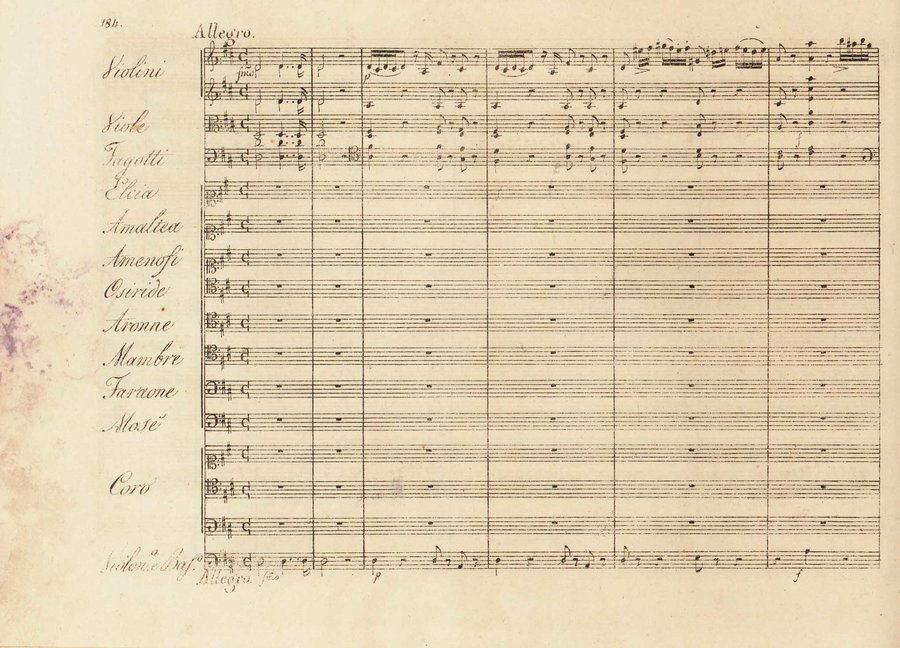 184.
Allegro.
Violini
fmo
p
Viole
Fagotti
f
Elcia
Amaltea
Amenofi
Osiride
Aronne
Mambre
Faraone
Mosè
Coro
Violon.o e Bas.o
Allegro. fmo
p
f